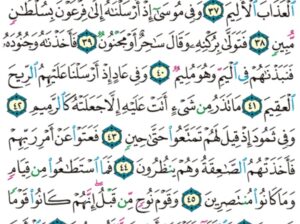 الْعَذَابَ الْأَلِيمَ ٣٧ وَفِي مُوسَىٰ إِذْ أَرْسَلْنَاهُ إِلَىٰ فِرْعَوْنَ بِسُلْطَانٍ
مُّبِينٍ ٣٨ فَتَوَلَّىٰ بِرُكْنِهِ وَقَالَ سَاحِرٌ أَوْ مَجْنُونٌ ٣٩ فَأَخَذْنَاهُ وَجُنُودَهُ
فَنَبَذْنَاهُمْ فِي الْيَمِّ وَهُوَ مُلِيمٌ ٤٠ وَفِي عَادٍ إِذْ أَرْسَلْنَا عَلَيْهِمُ الرِّيحَ
الْعَقِيمَ ٤١ مَا تَذَرُ مِن شَيْءٍ أَتَتْ عَلَيْهِ إِلَّا جَعَلَتْهُ كَالرَّمِيمِ ٤٢
وَفِي ثَمُودَ إِذْ قِيلَ لَهُمْ تَمَتَّعُوا حَتَّىٰ حِينٍ ٤٣ فَعَتَوْا عَنْ أَمْرِ رَبِّهِمْ
فَأَخَذَتْهُمُ الصَّاعِقَةُ وَهُمْ يَنظُرُونَ ٤٤ فَمَا اسْتَطَاعُوا مِن قِيَامٍ
وَمَا كَانُوا مُنتَصِرِينَ ٤٥ وَقَوْمَ نُوحٍ مِّن قَبْلُ إِنَّهُمْ كَانُوا قَوْمًا